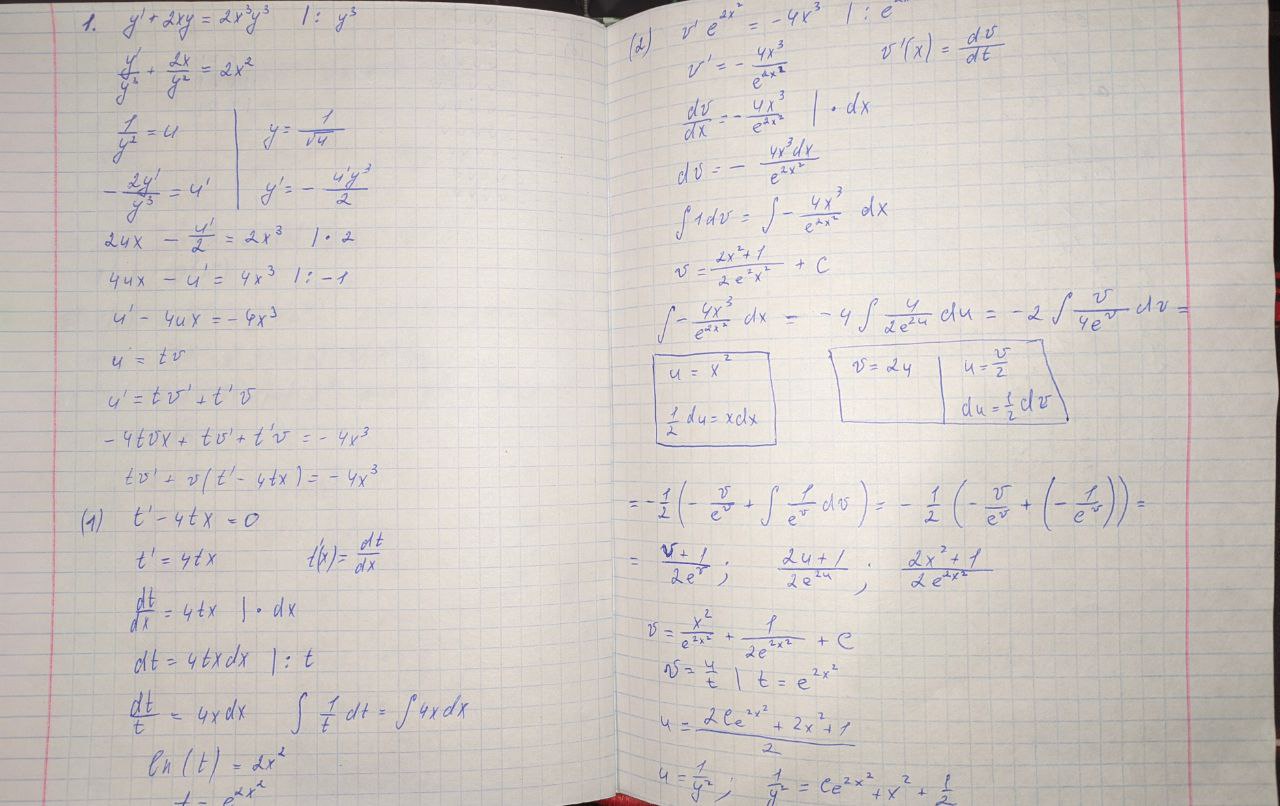 1. y' + 2xy = 2x³y³ | : y³
y'/y³ + 2x/y² = 2x²
1/y² = u | y = 1/√u
- 2y'/y³ = u' | y' = - u'y³/2
2ux - u'/2 = 2x³ | · 2
4ux - u' = 4x³ | : -1
u' - 4ux = -4x³
u = tv
u' = tv' + t'v
-4tvx + tv' + t'v = -4x³
tv' + v(t' - 4tx) = -4x³
(1) t' - 4tx = 0
t' = 4tx t'(x) = dt/dx
dt/dx = 4tx | · dx
dt = 4txdx | : t
dt/t = 4xdx ∫ 1/t dt = ∫ 4xdx
ln(t) = 2x²
t = e^(2x²)
(2) v' e^(2x²) = -4x³ | : e
v' = - 4x³/e^(2x²) v'(x) = dv/dt
dv/dx = - 4x³/e^(2x²) | · dx
dv = - 4x³dx/e^(2x²)
∫ 1dv = ∫ - 4x³/e^(2x²) dx
v = (2x²+1)/(2e^(2x²)) + C
∫ - 4x³/e^(2x²) dx = -4 ∫ u/(2e^(2u)) du = -2 ∫ v/(4e^v) dv =
u = x²
1/2 du = xdx
v = 2u | u = v/2
du = 1/2 dv
= -1/2 (- v/e^v + ∫ 1/e^v dv) = - 1/2 (- v/e^v + (- 1/e^v)) =
= (v+1)/(2e^v) ; (2u+1)/(2e^(2u)) ; (2x²+1)/(2e^(2x²))
v = x²/e^(2x²) + 1/(2e^(2x²)) + C
v = u/t | t = e^(2x²)
u = (2Ce^(2x²) + 2x² + 1)/2
u = 1/y² ; 1/y² = Ce^(2x²) + x² + 1/2